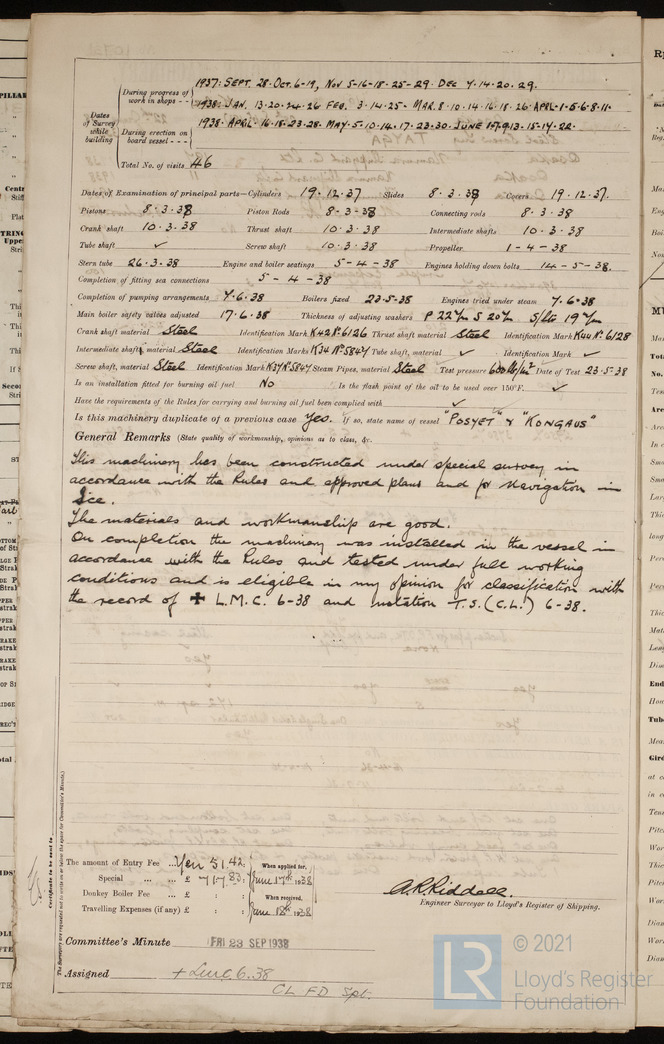 Dates of Survey while building
During progress of work in shops - -
1937: SEPT. 28. OCT. 6-19, NOV 5-16-18-25-29. DEC 7.14.20.29.
1938: JAN. 13.20.24.26 FEB. 3.14.25. MAR. 8.10.14.16.18.26. APRL.1.5.6.8.11.
During erection on board vessel - - -
1938. APRIL. 16.18.23.28. MAY. 5.10.14.17.23.30. JUNE 1.7.9.13.15.17.22.
Total No. of visits 46
Dates of Examination of principal parts—Cylinders 19.12.37. Slides 8.3.38 Covers 19.12.37.
Pistons 8.3.38 Piston Rods 8-3-38 Connecting rods 8.3.38
Crank shaft 10.3.38 Thrust shaft 10.3.38 Intermediate shafts 10.3.38
Tube shaft ✓ Screw shaft 10.3.38 Propeller 1-4-38
Stern tube 26.3.38 Engine and boiler seatings 5-4-38 Engines holding down bolts 14-5-38.
Completion of fitting sea connections 5-4-38
Completion of pumping arrangements 7.6.38 Boilers fixed 23.5.38 Engines tried under steam 7.6.38
Main boiler safety valves adjusted 17.6.38 Thickness of adjusting washers P 22 S 20 19
Crank shaft material Steel Identification Mark K42 No. 6126 Thrust shaft material Steel Identification Mark K44 No. 6128
Intermediate shafts, material Steel Identification Marks K34 No. 5847 Tube shaft, material ✓ Identification Mark ✓
Screw shaft, material Steel Identification Mark K37 No. 5847 Steam Pipes, material Steel Test pressure 600 lb/in² Date of Test 23-5-38
Is an installation fitted for burning oil fuel No Is the flash point of the oil to be used over 150°F. ✓
Have the requirements of the Rules for carrying and burning oil fuel been complied with ✓
Is this machinery duplicate of a previous case Yes. If so, state name of vessel "POSYET" & "KONGAUS"
General Remarks (State quality of workmanship, opinions as to class, &c.
This machinery has been constructed under special survey in
accordance with the Rules and approved plans and for Navigation in
Ice.
The materials and workmanship are good.
On completion the machinery was installed in the vessel in
accordance with the Rules and tested under full working
conditions and is eligible in my opinion for classification with
the record of ✠ L.M.C. 6-38 and notation T.S.(C.L.) 6-38.
Certificate to be sent to
(The Surveyors are requested not to write on or below the space for Committee's Minute.)
The amount of Entry Fee ... Yen 51.42. When applied for,
Special ... ... £ 717.83. June 17th 1938
Donkey Boiler Fee ... £ : : When received,
Travelling Expenses (if any) £ : : June 18th 1938
A.R. Riddell.
Engineer Surveyor to Lloyd's Register of Shipping.
Committee's Minute FRI 23 SEP 1938
Assigned + LMC 6.38
CL FD Spt.
© 2021
LR
Lloyd's Register
Foundation